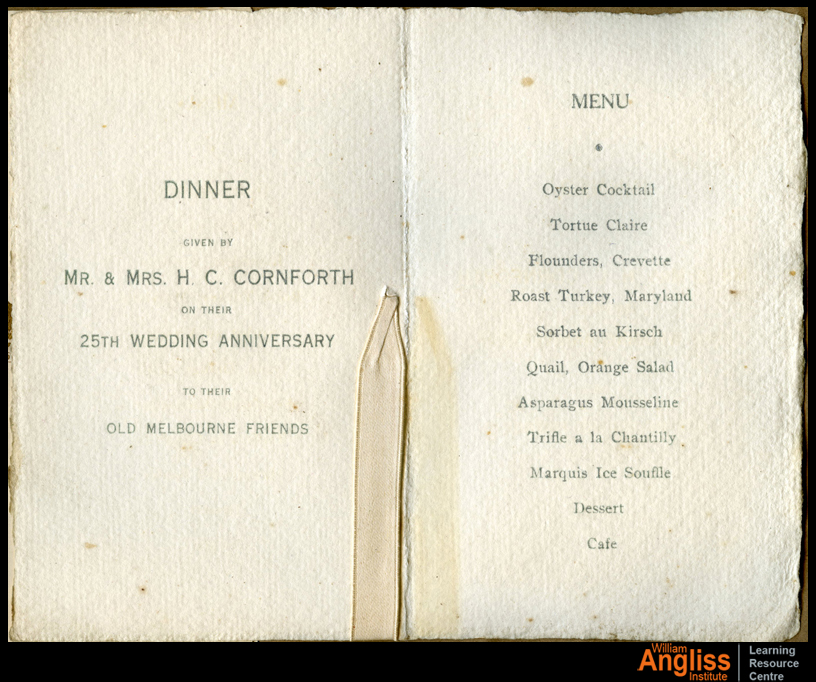 DINNER
GIVEN BY
MR. & MRS. H. C. CORNFORTH
ON THEIR
25TH WEDDING ANNIVERSARY
TO THEIR
OLD MELBOURNE FRIENDS
MENU
Oyster Cocktail
Tortue Claire
Flounders, Crevette
Roast Turkey, Maryland
Sorbet au Kirsch
Quail, Orange Salad
Asparagus Mousseline
Trifle a la Chantilly
Marquis Ice Souffle
Dessert
Cafe
William
Angliss
Institute
Learning
Resource
Centre